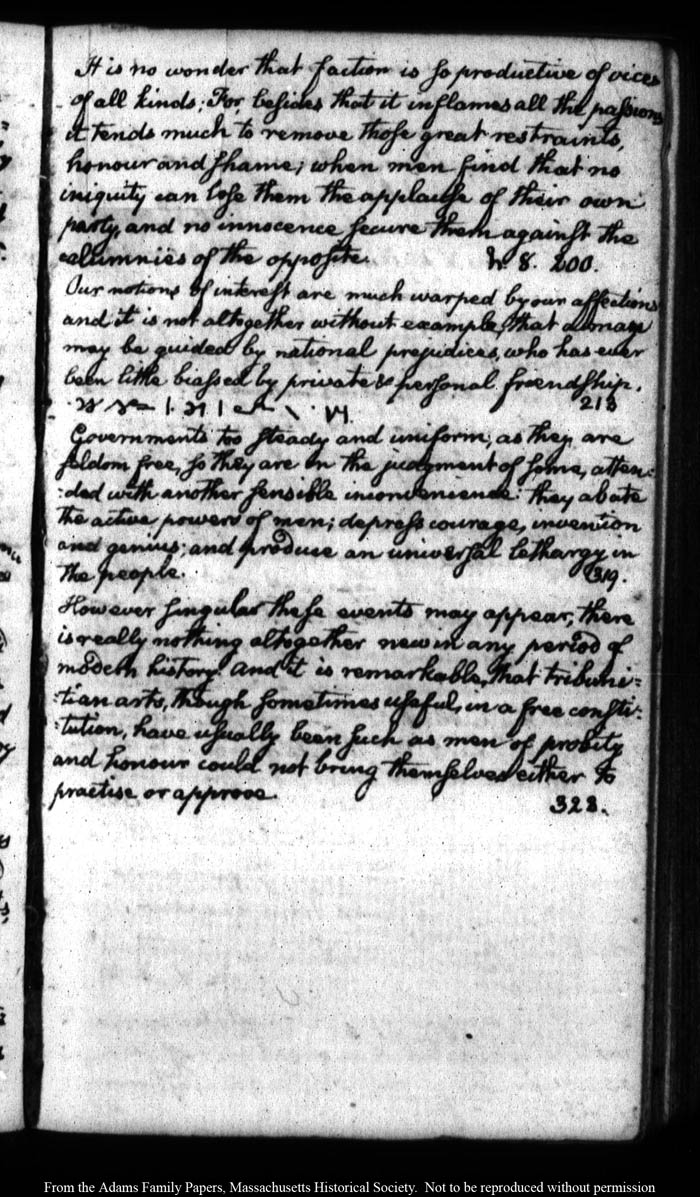 It is no wonder that faction is so productive of vices
of all kinds: For, besides that it inflames all the passions
it tends much to remove those great restraints,
honour and shame; when men find that no
iniquity can lose them the applause of their own
party, and no innocence secure them against the
calumnies of the opposite. h. 8. 200.
Our notions of interest are much warped by our affections
and it is not altogether without example, that a man
may be guided by national prejudices, who has ever
been little biassed by private & personal friendship.
213
Governments too steady and uniform, as they are
seldom free, so they are in the judgment of some, atten-
:ded with another sensible inconvenience: they abate
the active powers of men; depress courage, invention
and genius; and produce an universal lethargy in
the people. 319.
However singular these events may appear, there
is really nothing altogether new in any period of
modern history: and it is remarkable, that tribuni=
:tian arts, though sometimes useful, in a free consti:
:tution, have usually been such as men of probity
and honour could not bring themselves either to
practise or approve. 323.
From the Adams Family Papers, Massachusetts Historical Society. Not to be reproduced without permission